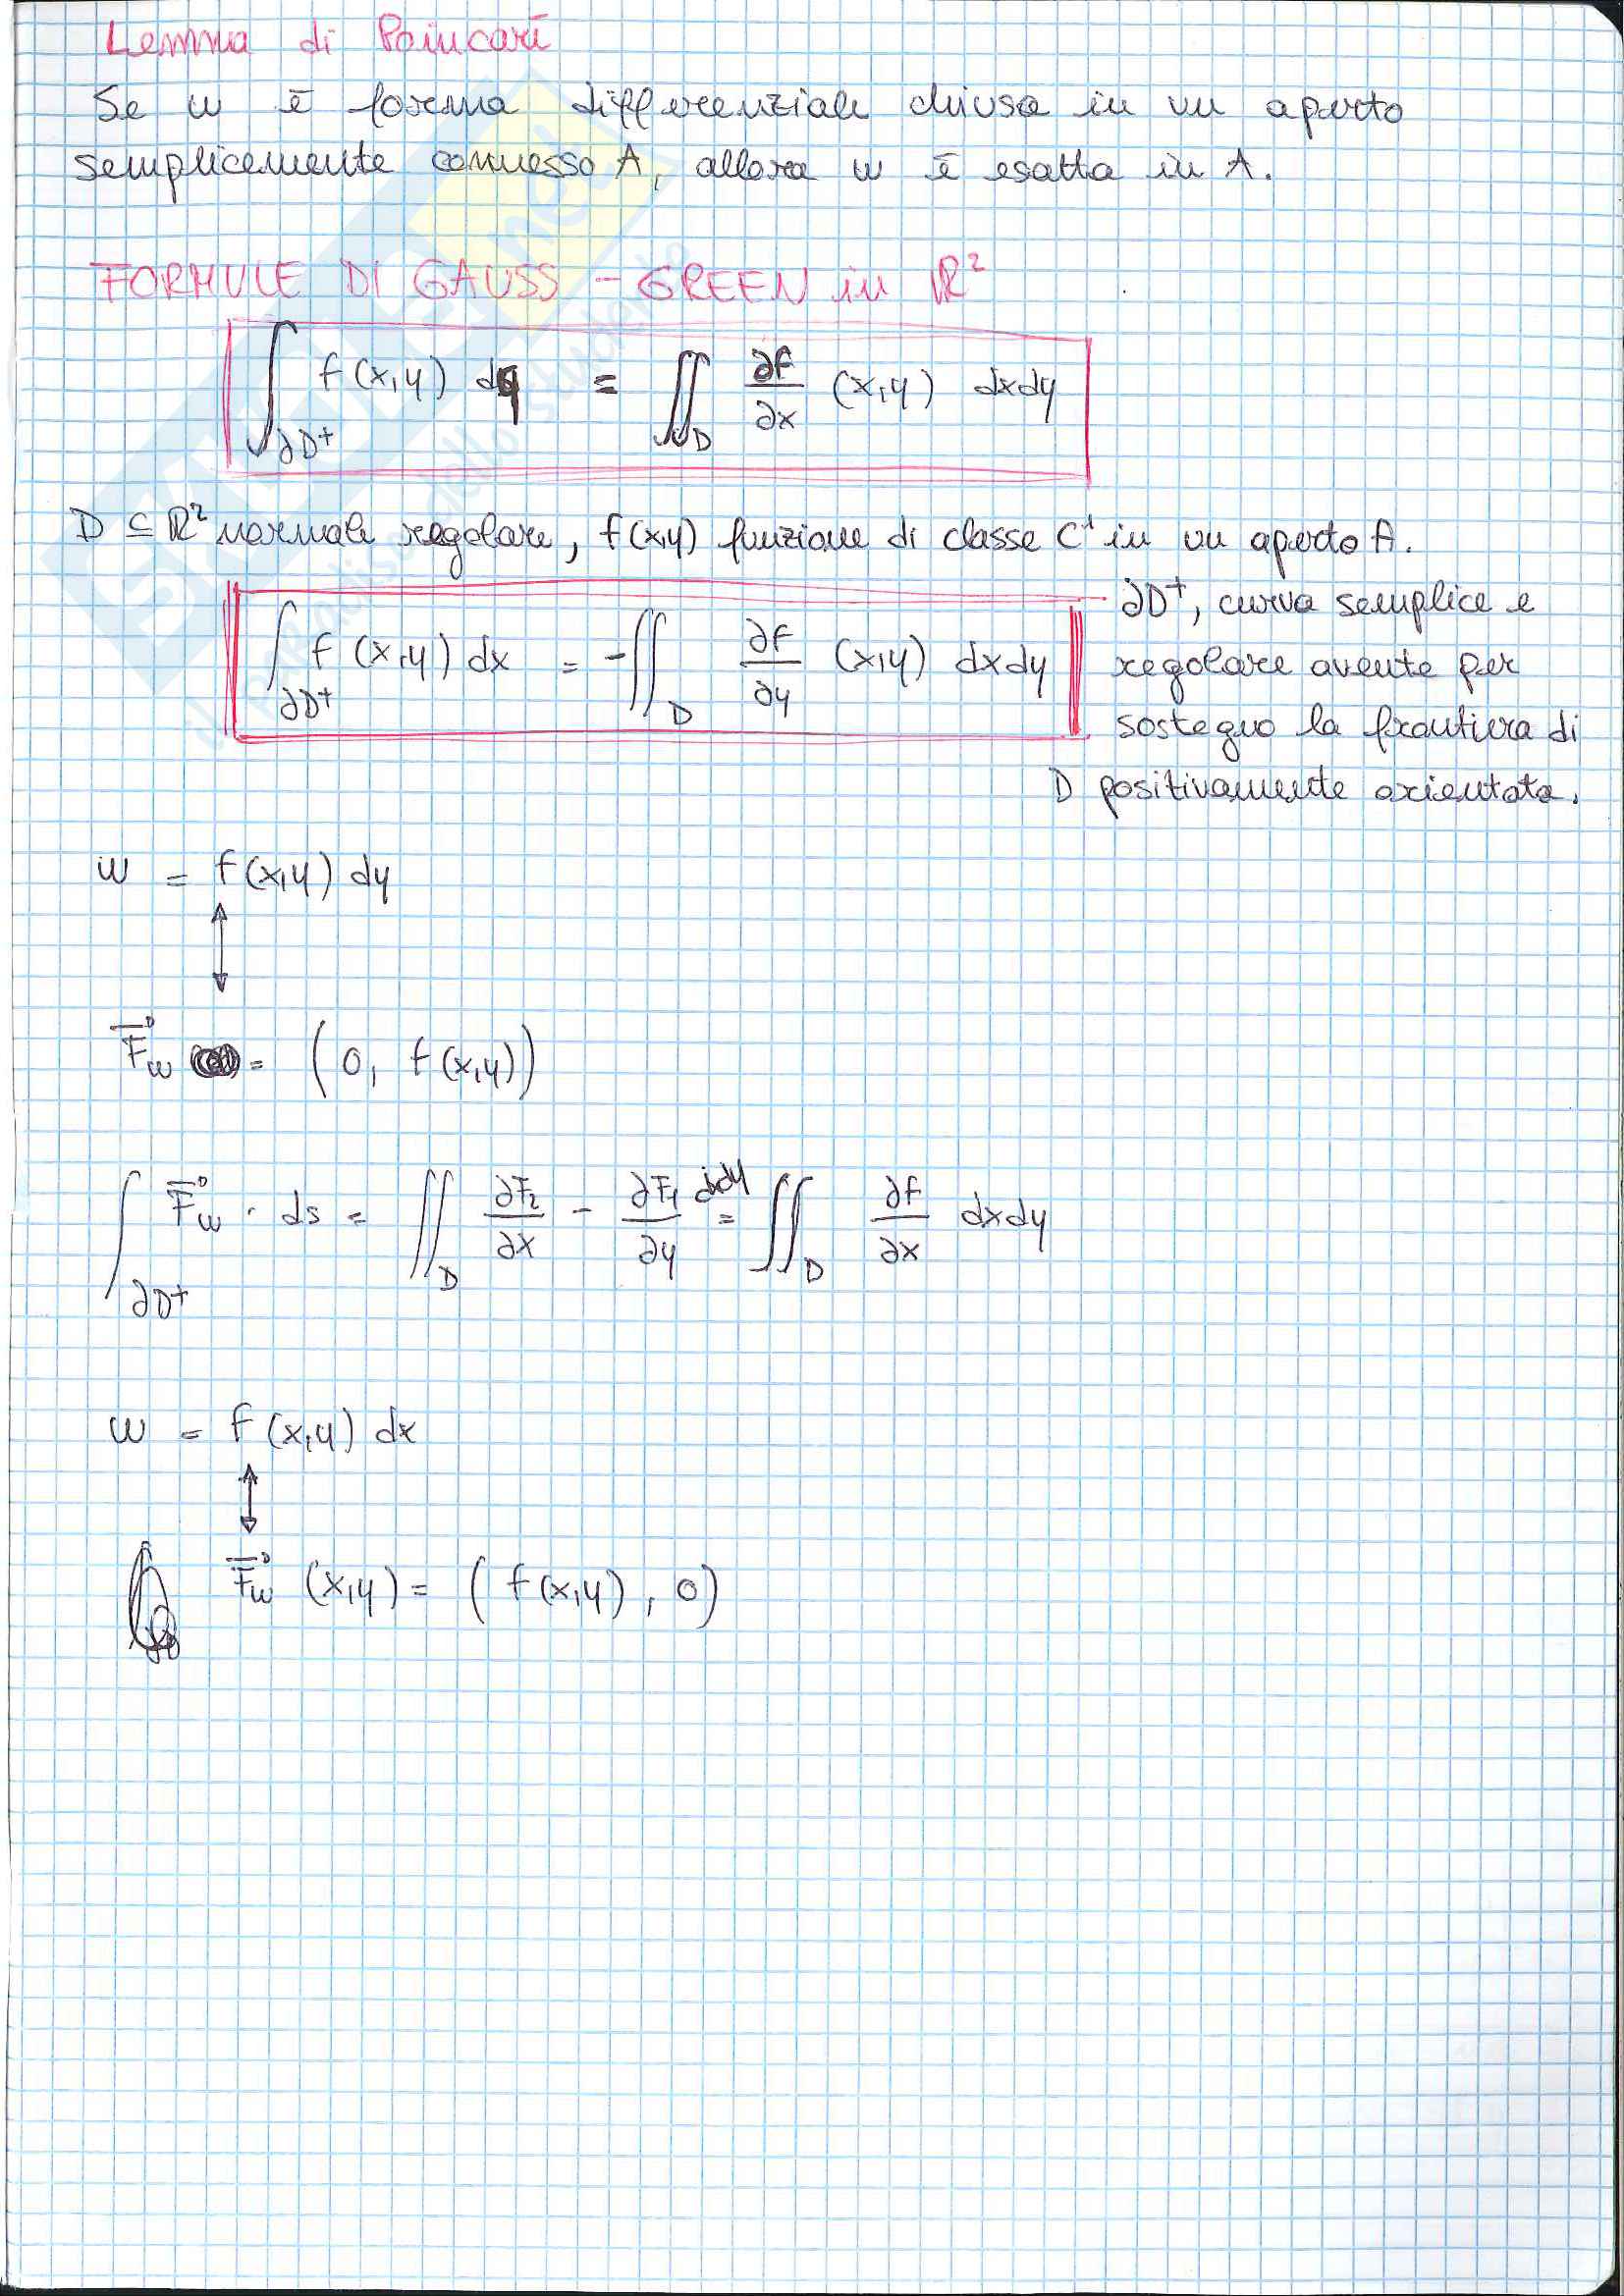 Lemma di Poincarè
Se w è forma differenziale chiusa in un aperto
semplicemente connesso A, allora w è esatta in A.
FORMULE DI GAUSS - GREEN in ℝ²
∫_{∂D⁺} f(x,y) dy = ∬_D ∂f/∂x (x,y) dxdy
D ⊆ ℝ² normale regolare, f(x,y) funzione di classe C¹ in un aperto A.
∫_{∂D⁺} f(x,y) dx = -∬_D ∂f/∂y (x,y) dxdy
∂D⁺, curva semplice e
regolare avente per
sostegno la frontiera di
D positivamente orientata.
w = f(x,y) dy
↕
F⃗_w = (0, f(x,y))
∫_{∂D⁺} F⃗_w · ds = ∬_D ∂F₂/∂x - ∂F₁/∂y dxdy = ∬_D ∂f/∂x dxdy
w = f(x,y) dx
↕
F⃗_w (x,y) = (f(x,y), 0)